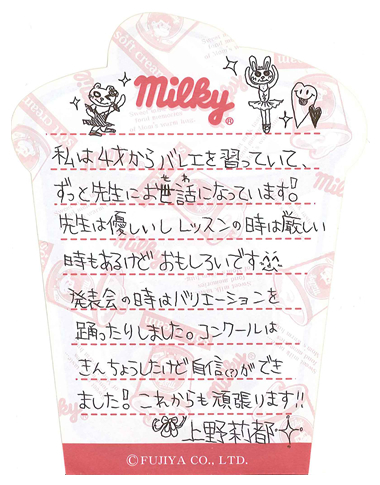 milky®
私は4才からバレエを習っていて、
ずっと先生にお世話(せわ)になっています!
先生は優しいし レッスンの時は厳しい
時もあるけど おもしろいです
発表会の時はバリエーションを
踊ったりしました。コンクールは
きんちょうしたけど自信(?)ができ
ました! これからも頑張ります!!
上野莉都
©FUJIYA CO., LTD.